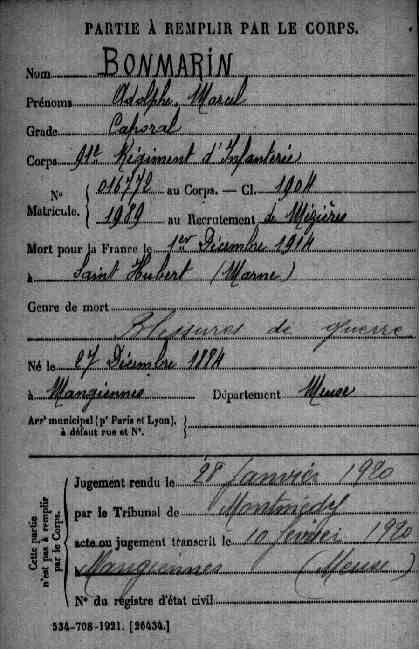 PARTIE À REMPLIR PAR LE CORPS.
Nom BONMARIN
Prénoms Adolphe, Marcel
Grade Caporal
Corps 91e Régiment d'Infanterie
N° Matricule. { 016772 au Corps. — Cl. 1904
1989 au Recrutement de Mézières
Mort pour la France le 1er Décembre 1914
à Saint Hubert (Marne)
Genre de mort
Blessures de guerre
Né le 27 Décembre 1884
à Mangiennes Département Meuse
Arr' municipal (p' Paris et Lyon),
à défaut rue et N°.
Cette partie n'est pas à remplir par le Corps.
Jugement rendu le 28 Janvier 1920
par le Tribunal de Montmédy
acte ou jugement transcrit le 10 février 1920
Mangiennes (Meuse)
N° du registre d'état civil
534-708-1921. [26434.]